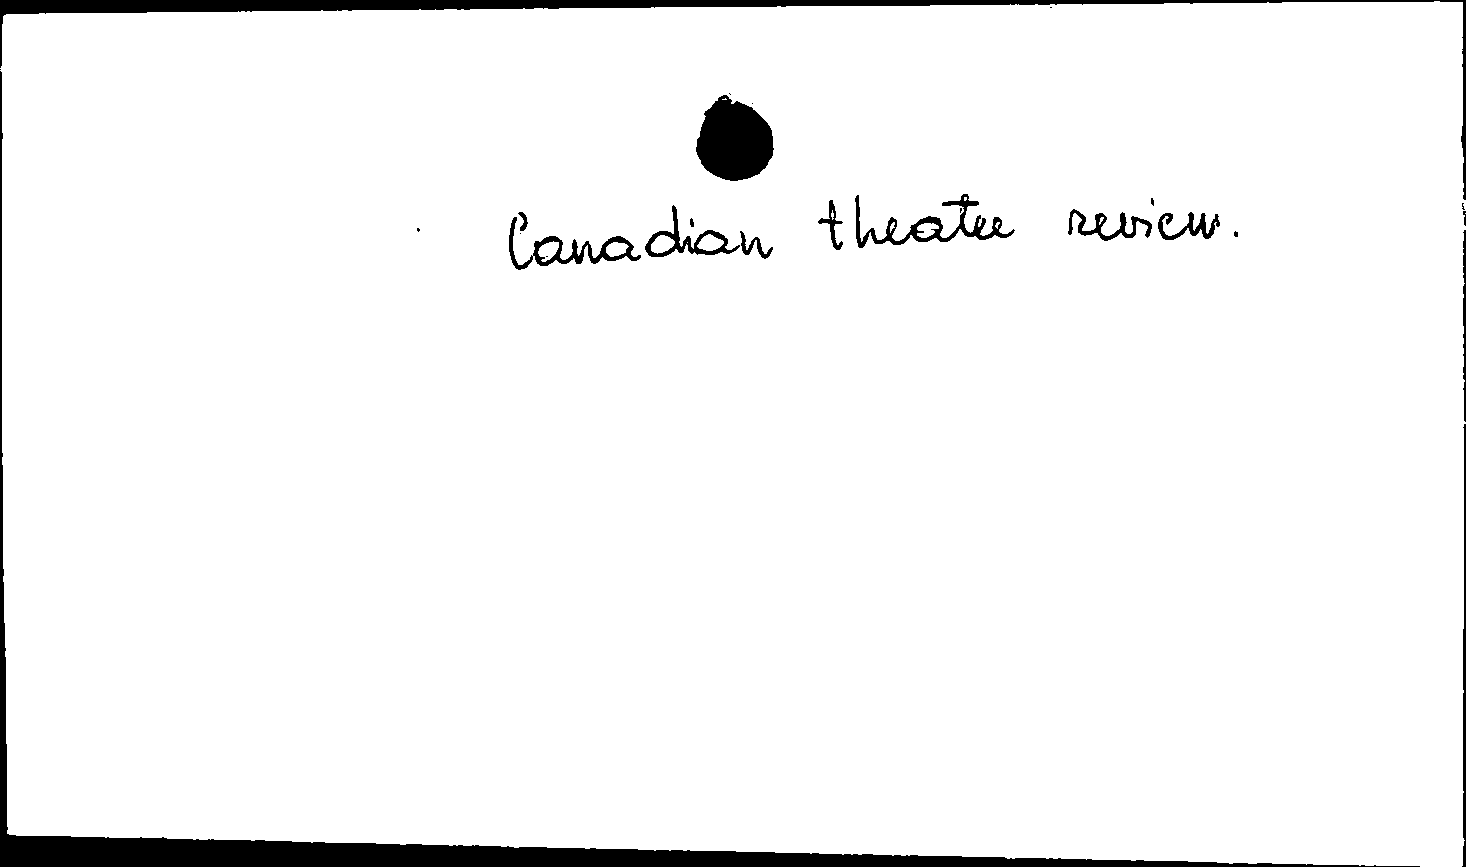 Canadian theatre review.